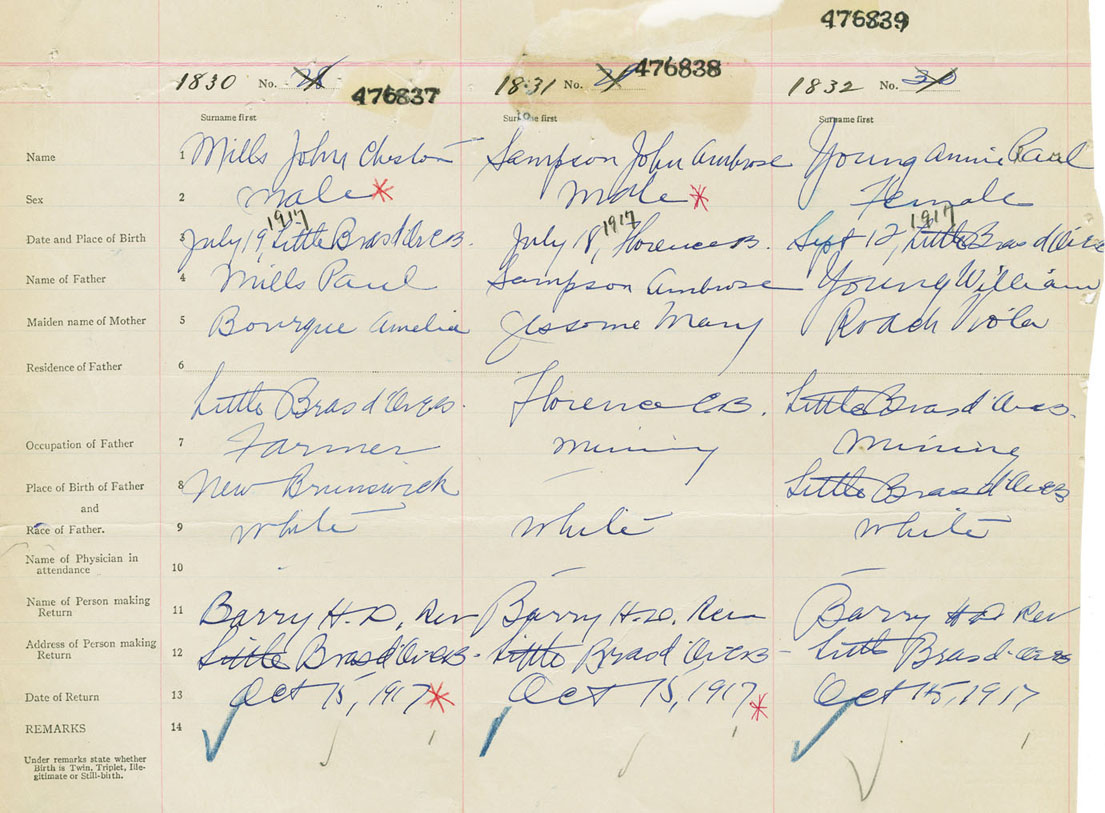 476839
1830 No. 28 476837 1831 No. 29 476838 1832 No. 30
Surname first Surname first Surname first
Name 1 Mills John Cheston Sampson John Ambrose Young Annie Pearl
Sex 2 Male Male Female
1917 1917 1917
Date and Place of Birth 3 July 19, Little Bras d'Or C.B. July 18, Florence C.B. Sept 12, Little Bras d'Or C.B.
Name of Father 4 Mills Paul Sampson Ambrose Young William
Maiden name of Mother 5 Bourque Amelia Jessome Mary Roach Viola
Residence of Father 6
Little Bras d'Or C.B. Florence C.B. Little Bras d'Or C.B.
Occupation of Father 7 Farmer Mining Mining
Place of Birth of Father 8 New Brunswick Little Bras d'Or C.B.
and
Race of Father. 9 White White White
Name of Physician in
attendance 10
Name of Person making
Return 11 Barry H.D. Rev Barry H.D. Rev Barry H D Rev
Address of Person making
Return 12 Little Bras d'Or C.B. Little Bras d'Or C.B. Little Bras d'Or C.B.
Date of Return 13 Oct 15, 1917 Oct 15, 1917 Oct 15, 1917
REMARKS 14
Under remarks state whether
Birth is Twin, Triplet, Ille-
gitimate or Still-birth.